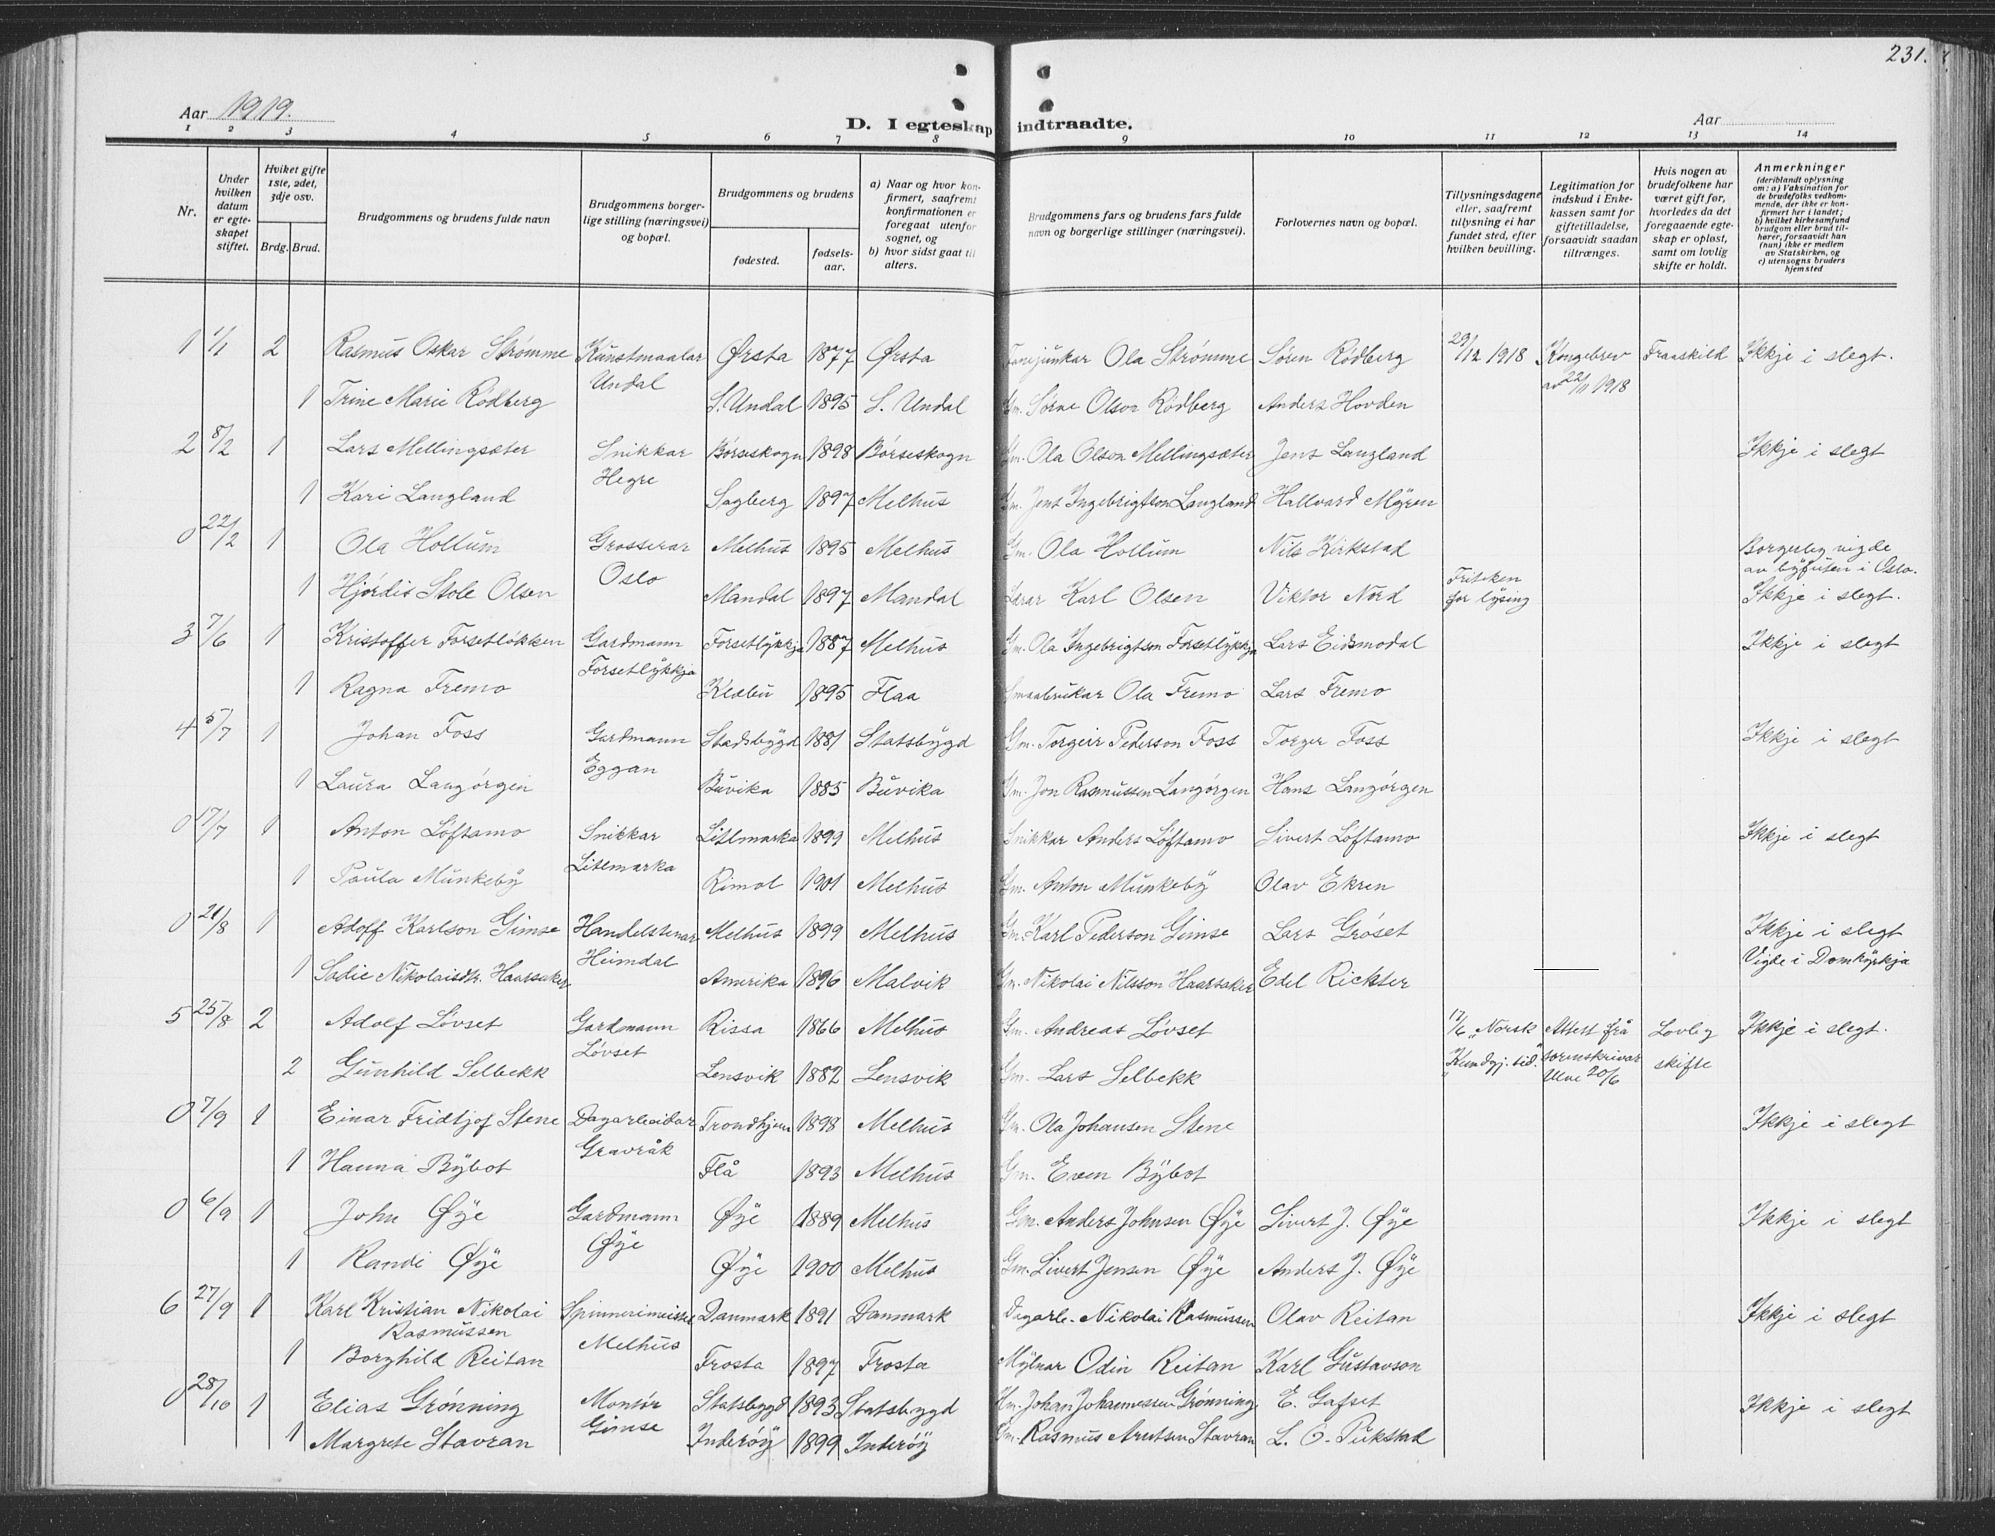 231.
Aar 1919.
D. I egteskap indtraadte.
Aar
1 2 3 4 5 6 7 8 9 10 11 12 13 14
Nr.
Under hvilken datum er egteskapet stiftet.
Hviket gifte 1ste, 2det, 3dje osv.
Brdg. Brud.
Brudgommens og brudens fulde navn
Brudgommens borgerlige stilling (næringsvei) og bopæl.
Brudgommens og brudens
fødested.
fødselsaar.
a) Naar og hvor konfirmert, saafremt konfirmationen er foregaat utenfor sognet, og
b) hvor sidst gaat til alters.
Brudgommens fars og brudens fars fulde navn og borgerlige stillinger (næringsvei).
Forlovernes navn og bopæl.
Tillysningsdagene eller, saafremt tillysning ei har fundet sted, efter hvilken bevilling.
Legitimation for indskud i Enkekassen samt for giftetilladelse, forsaavidt saadan tiltrænges.
Hvis nogen av brudefolkene har været gift før, hvorledes da det foregaaende egteskap er opløst, samt om lovlig skifte er holdt.
Anmerkninger (deriblandt oplysning om: a) Vaksination for de brudefolks vedkommende, der ikke er konfirmert her i landet; b) hvilket kirkesamfund brudgom eller brud tilhører, forsaavidt han (hun) ikke er medlem av Statskirken, og c) utensogns bruders hjemsted
1 1/1 2 Rasmus Oskar Strømme Kunstmaalar Ørsta 1877 Ørsta Fanejunkar Ola Strømme Søren Rødberg 29/12 1918 Kongebrev Fraaskild Ikkje i slegt.
Undal av 22/11 1918
1 Trine Marie Rødberg S. Undal 1895 S. Undal Gm. Sørne Olson Rødberg Anders Hovden
2 8/2 1 Lars Mellingsæter Snikkar Børseskogn 1898 Børseskogn Gm. Ola Olson Mellingsæter Jens Langland Ikkje i slegt
Hegre
1 Kari Langland Sagberg 1897 Melhus Gm. Jens Ingebrigtson Langland Hallvard Mýren
0 22/2 1 Ola Hollum Grosserar Melhus 1895 Melhus Gm. Ola Hollum Nils Kirkstad Borgerleg vigde
Oslo av býfuten i Oslo.
1 Hjørdis Stole Olsen Mandal 1897 Mandal Lærar Karl Olsen Viktor Nord Friteken for lysing Ikkje i slegt.
3 7/6 1 Kristoffer Forsetløkken Gardmann Forsetlýkkja 1887 Melhus Gm. Ola Ingebrigtson Forsetlýkkja Lars Eidsmodal Ikkje i slegt
Forsetlýkkja
1 Ragna Fremo Klæbu 1895 Flaa Smaabrukar Ola Fremo Lars Fremo
4 5/7 1 Johan Foss Gardmann Stadsbýgd 1881 Statsbýgd Gm. Torgeir Pederson Foss Torger Foss Ikkje i slegt
Eggan
1 Laura Langørgen Buvika 1885 Buvika Gm. Jon Rasmussen Langørgen Hans Langørgen
0 17/7 1 Anton Løftamo Snikkar Litlmarka 1899 Melhus Snikkar Anders Løftamo Sivert Løftamo Ikkje i slegt
Litlmarka
1 Paula Munkebý Rimol 1901 Melhus Gm. Anton Munkebý Olav Ekren
0 21/8 1 Adolf Karlson Gimse Handelstenar Melhus 1899 Melhus Gm. Karl Pederson Gimse Lars Grøset Ikkje i slegt
Heimdal Vigde i Domkýrkja
1 Sadie Nikolaisdtr. Haarsaker Amerika 1896 Malvik Gm. Nikolai Nilsson Haarsaker Edel Rickter
5 25/8 2 Adolf Løvset Gardmann Rissa 1866 Melhus Gm. Andreas Løvset 17/6 "Norsk Attest frå Lovleg Ikkje i slegt.
Løvset Kundgj. tid." sorenskrivar skifte
2 Gunhild Selbekk Lensvik 1882 Lensvik Gm. Lars Selbekk Ulve 20/6
0 7/9 1 Einar Fridtjof Stene Dagarbeidar Trondhjem 1898 Melhus Gm. Ola Johansen Stene Ikkje i slegt
Gravråk
1 Hanna Býbot Flå 1893 Melhus Gm. Even Býbot
0 6/9 1 John Øýe Gardmann Øýe 1889 Melhus Gm. Anders Johnsen Øýe Sivert J. Øýe Ikkje i slegt
Øýe
1 Randi Øýe Øýe 1900 Melhus Gm. Sivert Jensen Øýe Anders J. Øýe
6 27/9 1 Karl Kristian Nikolai Spinnerimeister Danmark 1891 Danmark Dagarb. Nikolai Rasmussen Olav Reitan Ikkje i slegt
Rasmussen Melhus
1 Borghild Reitan Frosta 1897 Frosta Mýlnar Odin Reitan Karl Gustavson
0 28/10 1 Elias Grønning Montør Statsbygd 1893 Statsbygd Hm. Johan Johannessen Grønning E. Gafset Ikkje i slegt
Gimse
1 Margrete Stavran Inderøý 1899 Inderøý Gm. Rasmus Arntsen Stavran L. O. Pukstad